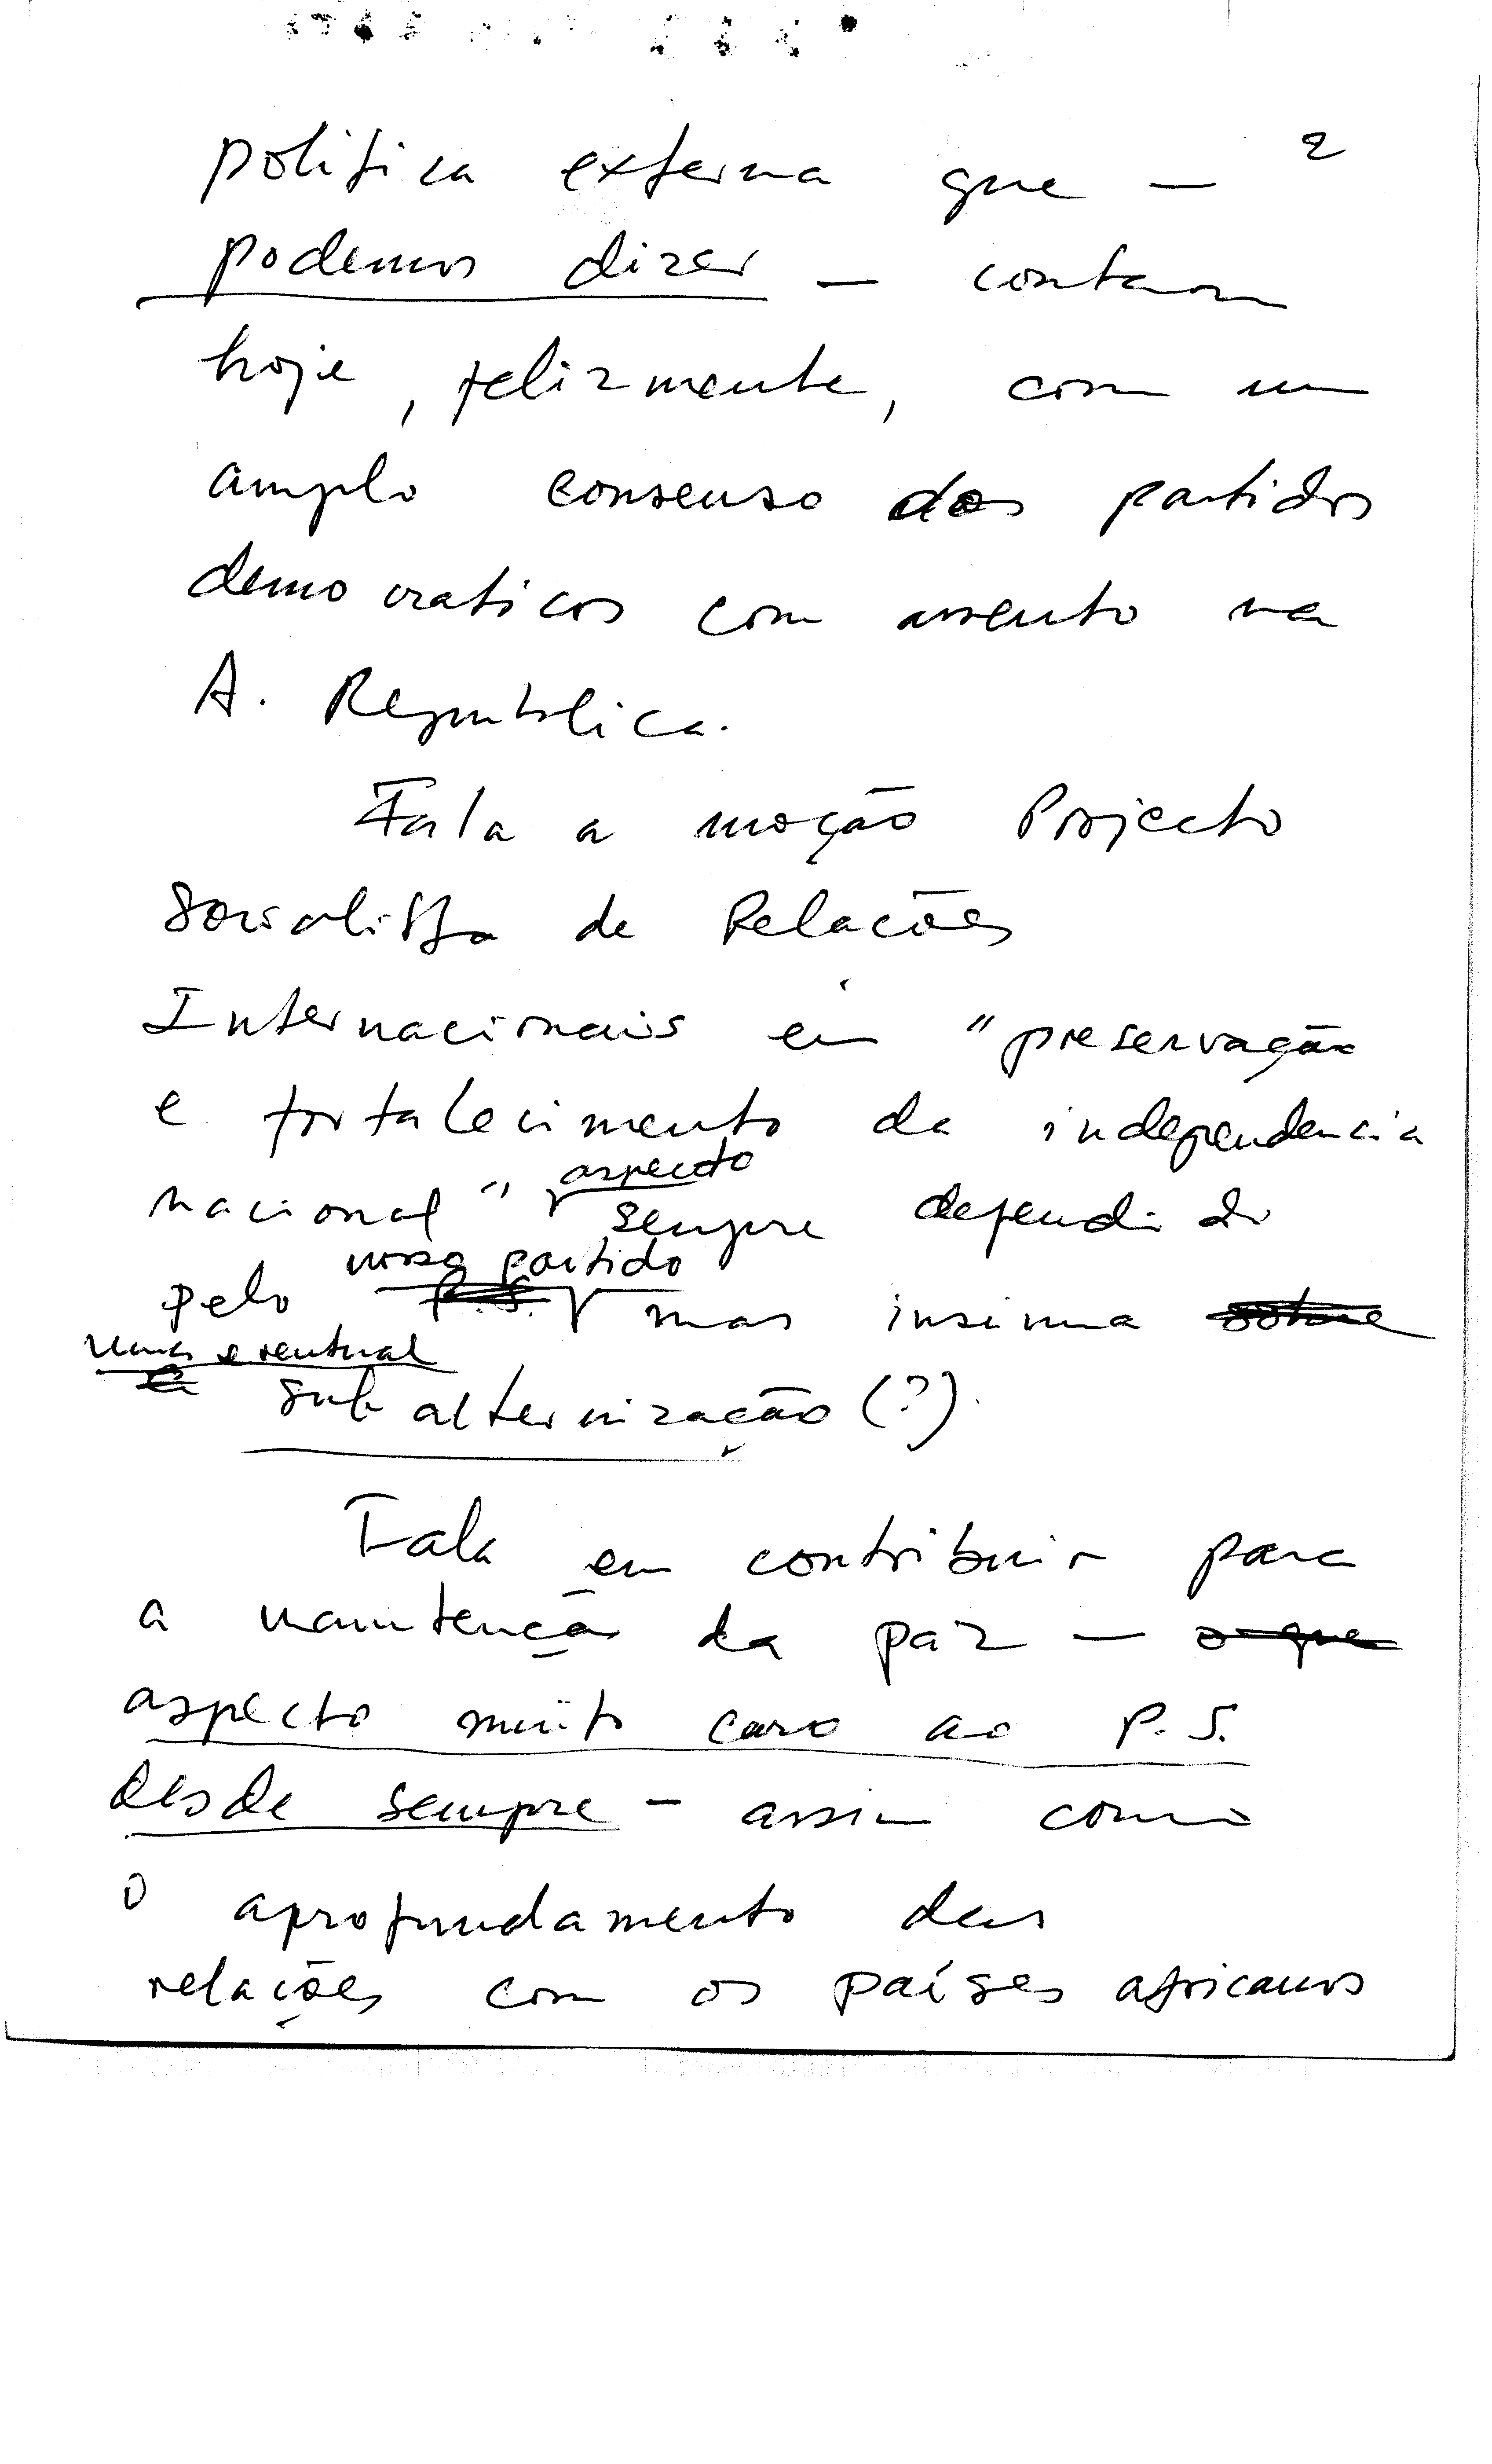 2
politica externa que —
podemos dizer — contam
hoje, felizmente, com um
amplo consenso dos partidos
democraticos com assento na
A. Republica.
Fala a moção Projecto
Socialista de Relações
Internacionais em "preservação
e fortalecimento da independencia
aspecto
nacional" sempre defendido
nosso partido
pelo P.S. mas insinua sobre
uma eventual
subalternização (?).
Fala em contribuir para
a manutenção da paz — o que
aspecto muito caro ao P.S.
desde sempre - assim como
o aprofundamento das
relações com os países africanos